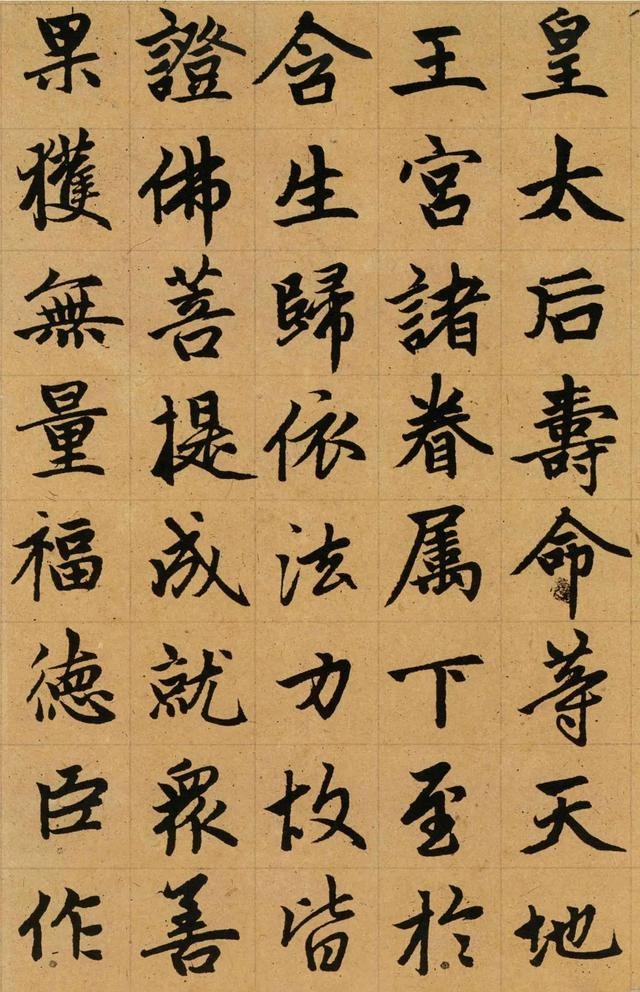 皇太后壽命等天地
王宮諸眷属下至於
含生歸依法力故皆
證佛菩提成就衆善
果獲無量福德臣作